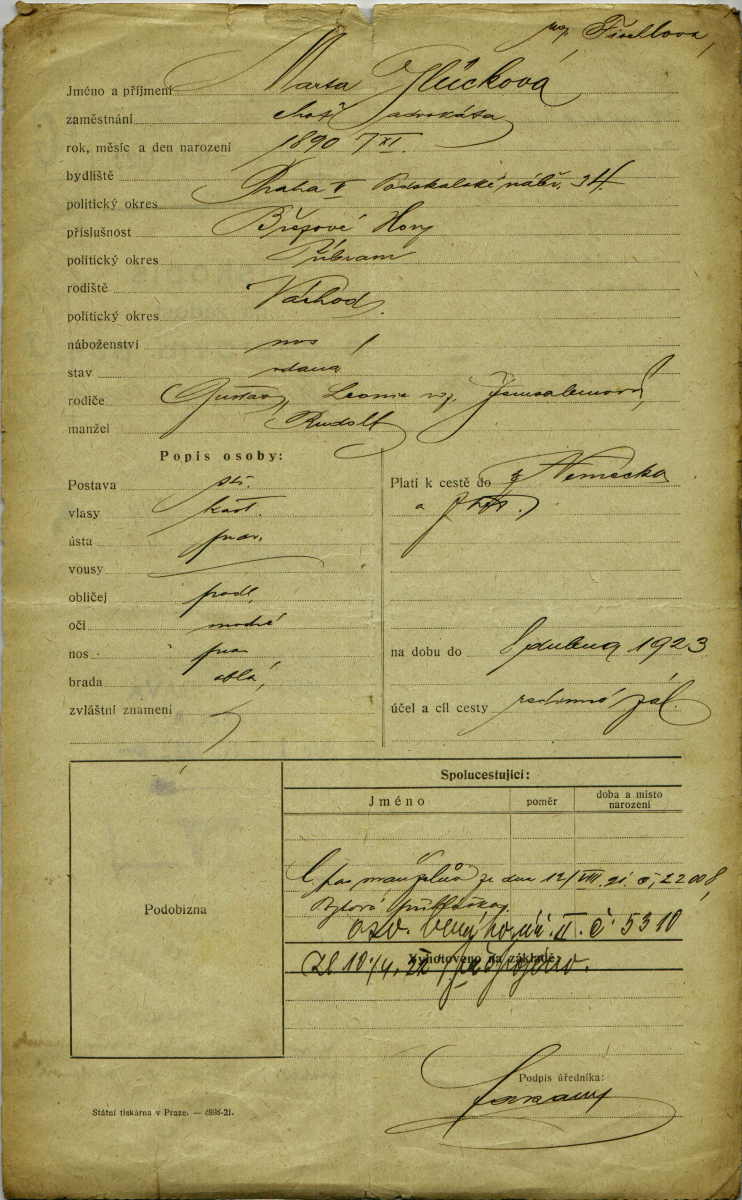 roz. Fischlová
Jméno a příjmení Marta Glücková
zaměstnání choť advokáta
rok, měsíc a den narození 1890 7/XI.
bydliště
Praha II Podskalské nábř. 34.
politický okres
příslušnost Březové Hory
politický okres Příbram
rodiště
Náchod
politický okres
náboženství mos
stav vdaná
rodiče Gustav, Leonie roz. Jerusalemová
manžel Rudolf
Popis osoby:
Postava stř.
Platí k cestě do Německa
vlasy kašt.
a
ústa prav.
vousy
obličej podl.
oči modré
nos prav
na dobu do 8 dubna 1923
brada oblá
zvláštní znamení
účel a cíl cesty rodinné zál.
Spolucestující:
Jméno
poměr
doba a místo narození
C. pas manželův ze dne 12/VIII. 21. č. 22008,
Bytová přihláška
osv. II. č. 5310
Podobizna
Vyhotoveno na základě:
Podpis úředníka:
Státní tiskárna v Praze. —